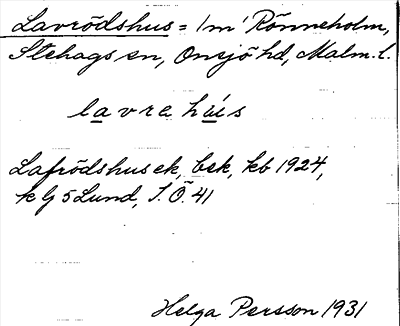 Lavrödshus = 1 m' Rönneholm,
Stehags sn, Onsjö hd, Malm. l.
lavrahús
Lafrödshus ek, bek, kb 1924,
k G 5 Lund, S. Ö. 41
Helga Persson 1931